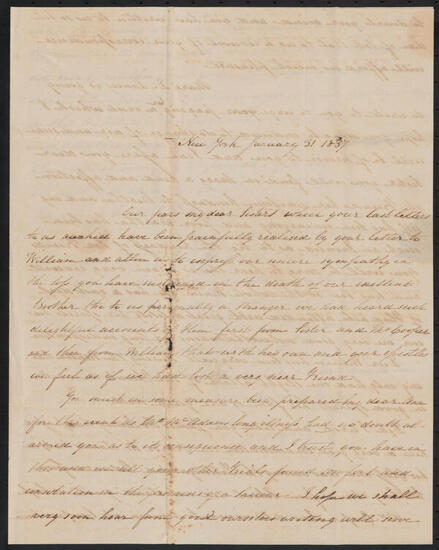 New York January 31 1837
Our fears my dear Sisters which your last letters
to us awaked have been painfully realised by your letter to
William and allow us to express our sincere sympathy in
the loss you have sustained in the death of our excellent
Brother tho to us personally a stranger we had heard such
delightful accounts of him first from Sister and Mr Cooper
and then from William that with his own and your epistles
we feel as if we had lost a very near Friend
You must in some measure been prepared my dear
for the event as Mr Adams long illness had no doubt
you as to its consequence and I trust you have in
this and in all your other trials found comfort and
consolation in the a Saviour I hope we shall
very soon hear from you ourselves writing will